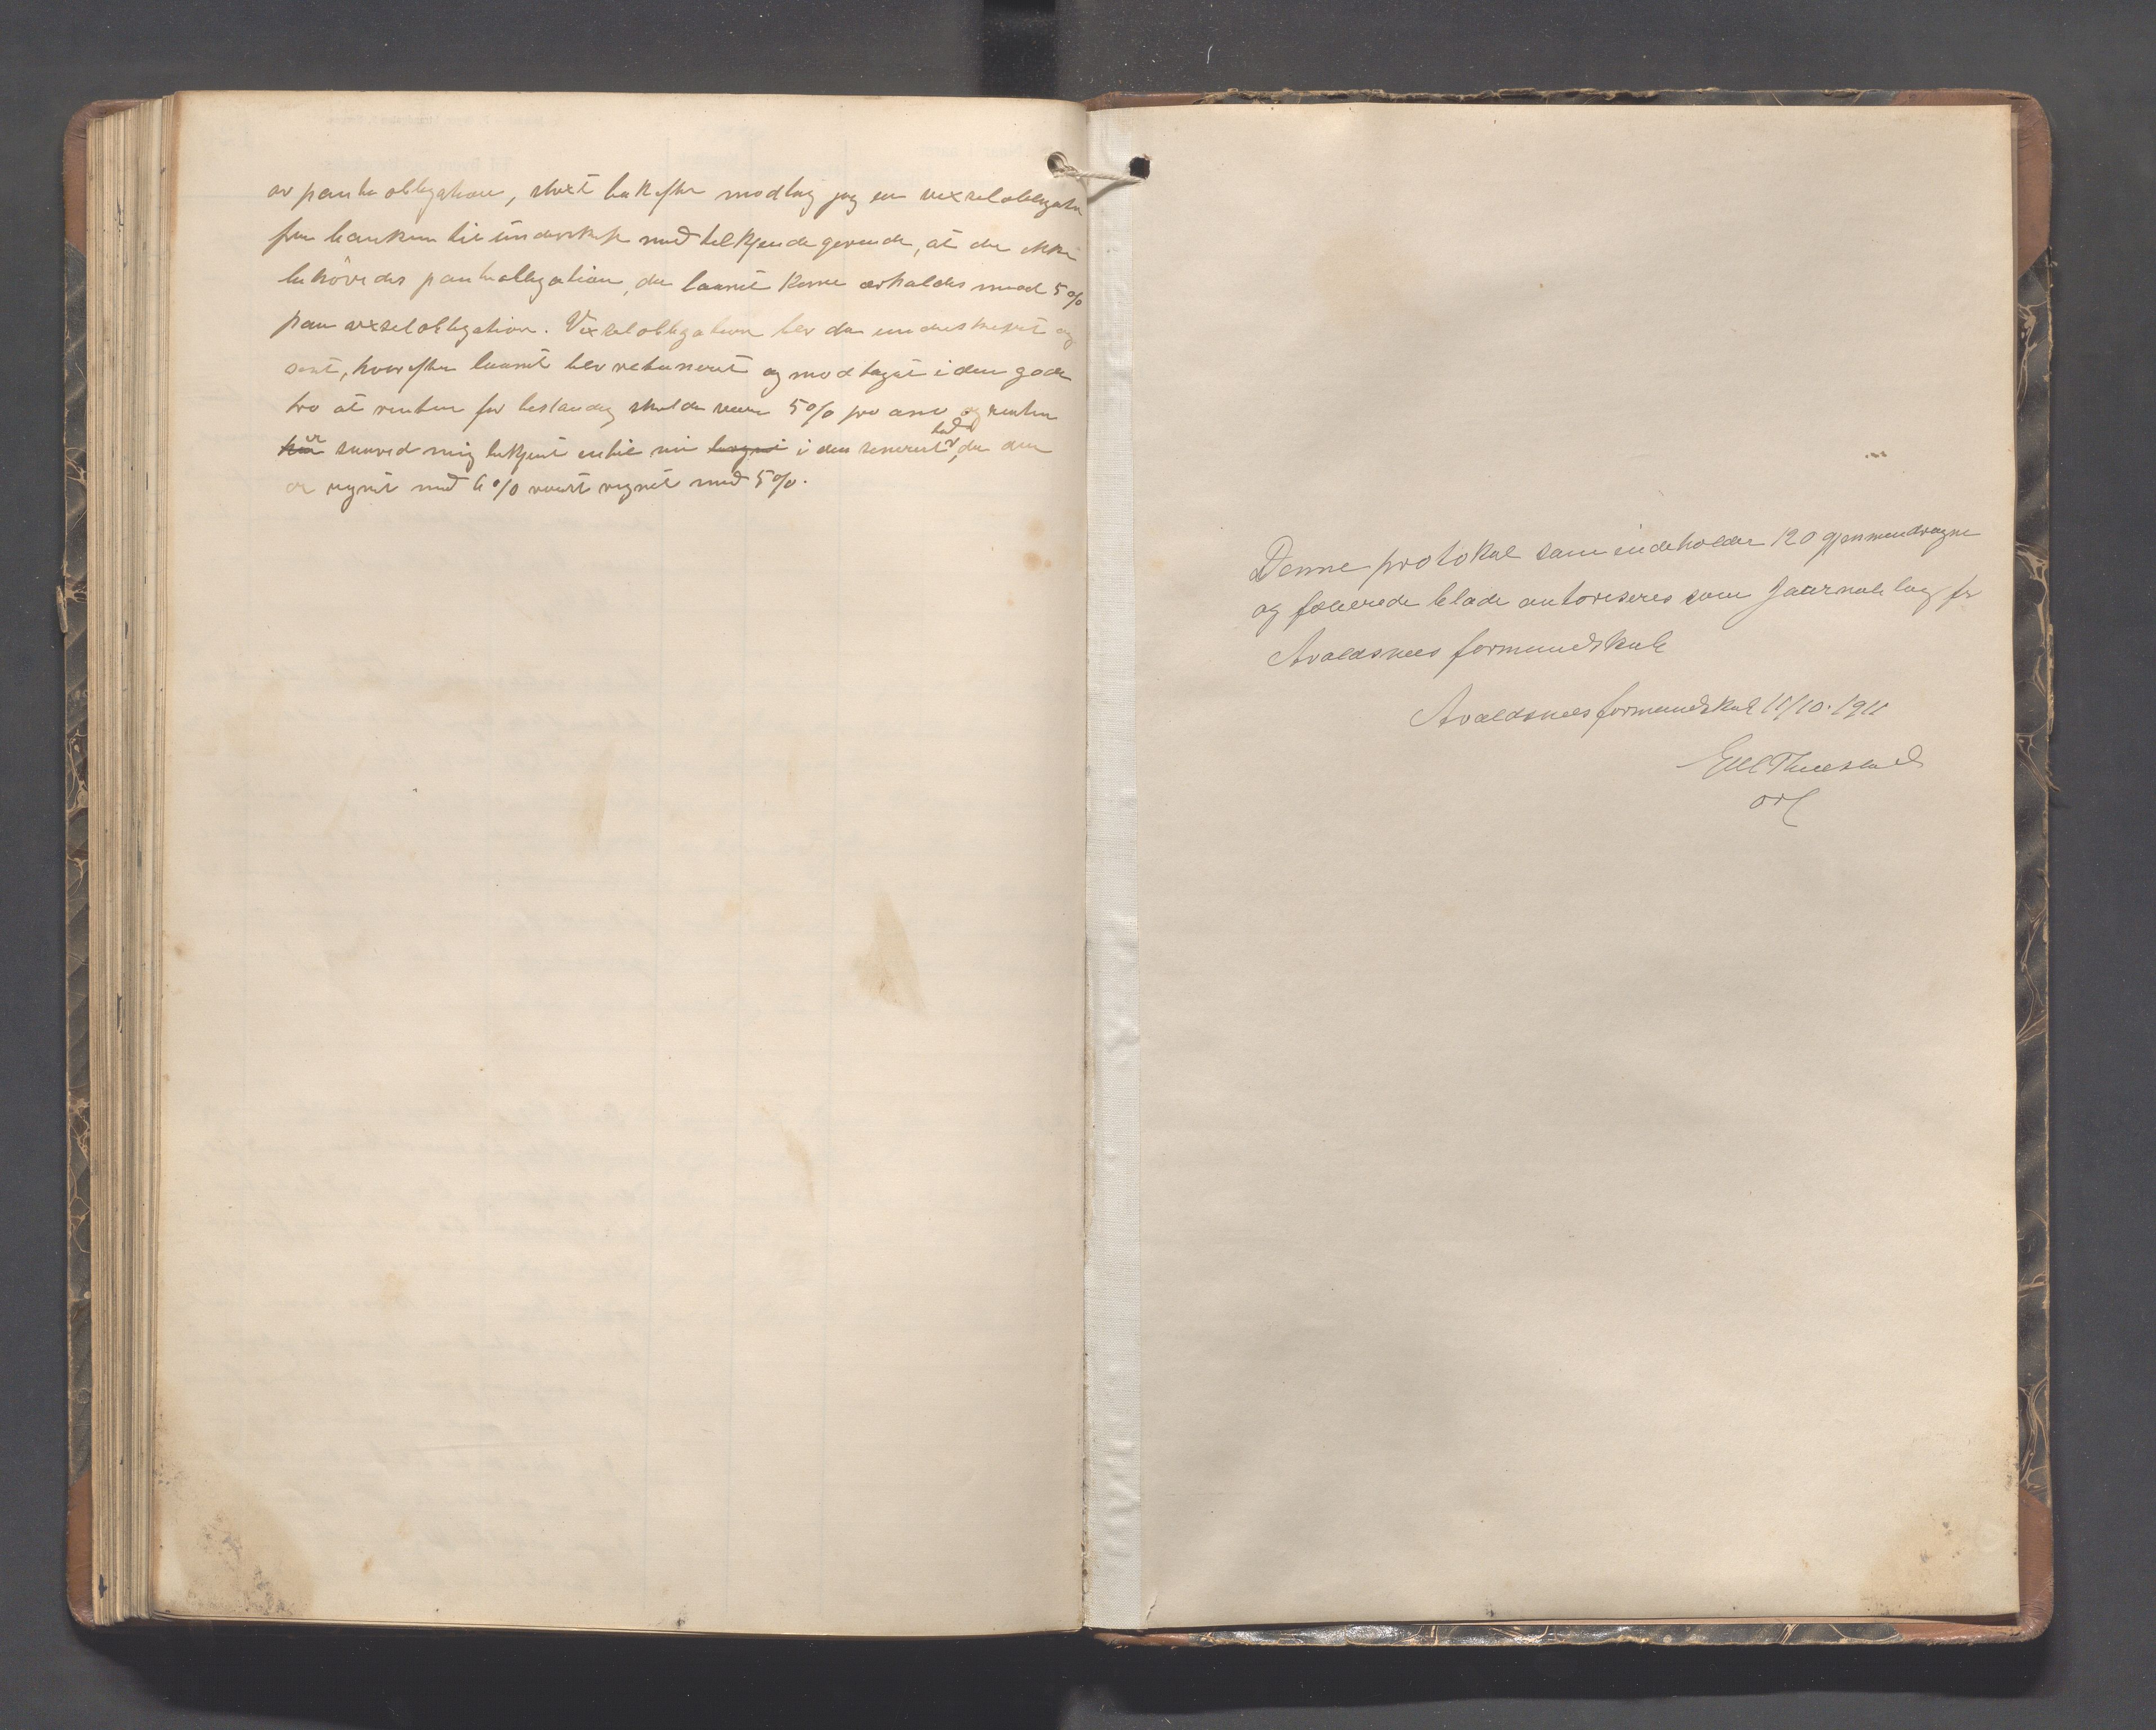 av pante obligation, strekt bak efter modtog jeg en vexselobligation
fra banken til underskrift med tilkjendegivende, at der ikke
behövedes panteobligation, da laanet kunne erholdes mod 5%
paa vexselobligation. Vexselobligation blev da underskrevet og
sent, hvorefter laanet blev returneret og modtaget i den gode
tro at renten for bestandig skulde være 5% pro anno og renten
er mig bekjent indtil nu i den senere tid, da den
er regnet med 6% været regnet med 5%.
Denne protokol som indeholder 120 gjennemdragne
og folierede blade autoriseres som Jaurnal bog for
Avaldsnes formandskab
Avaldsnes formandskab 11/10. 1911
ord